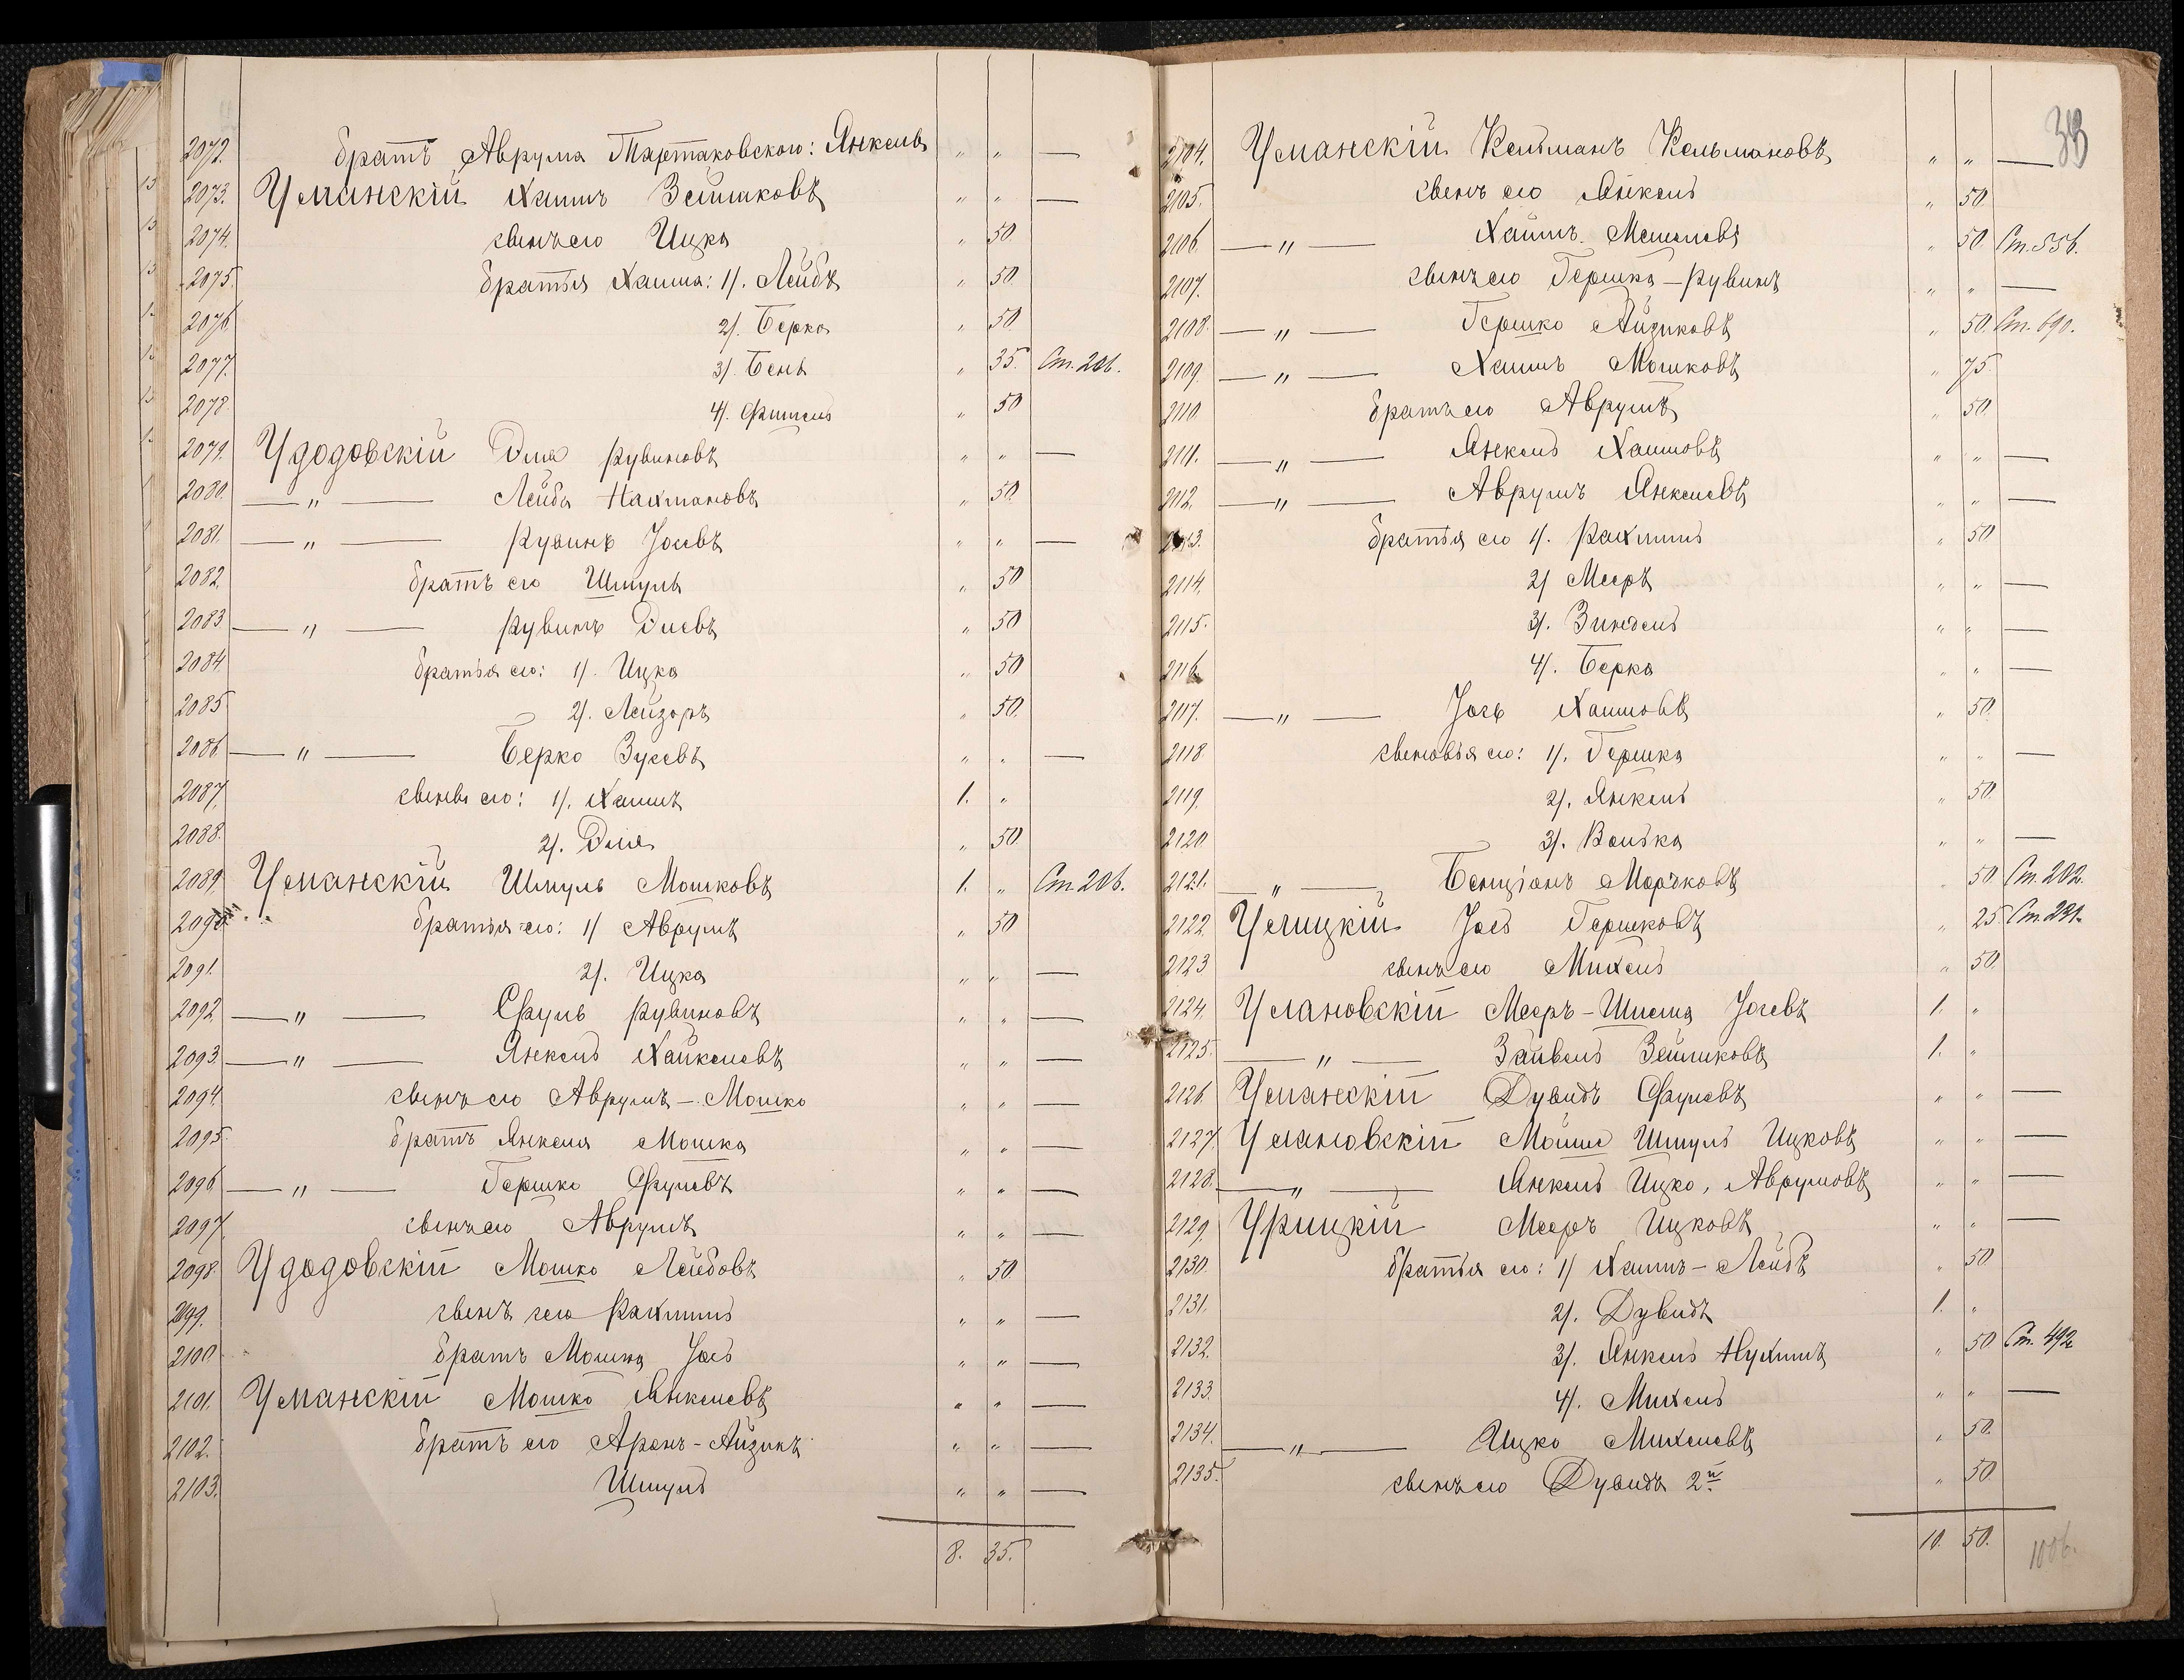 2072. братъ Аврума Тартаковского: Янкель " " —
2073. Уманскій Хаимъ Зейликовъ " " —
2074. сынъ его Ицка " 50
2075. братья Хаима: 1/. Лейбъ " 50
2076 2/. Берка " 50
2077. 3/. Бень " 35. Ст. 206.
2078. 4/. Фишель " 50
2079. Удодовскій Эля Рувиновъ " " —
2080. — " — Лейба Нахмановъ " 50
2081. — " — Рувинъ Іосевъ " " —
2082. братъ его Шмуль " 50
2083. — " — Рувинъ Элевъ " 50
2084. братья его: 1/. Ицка " 50
2085 2/. Лейзоръ " 50.
2086 — " — Берко Зусевъ " " —
2087. сыновья его: 1/. Хаимъ 1. "
2088. 2/. Эля " 50
2089. Уманскій Шмуль Мошковъ 1. " Ст. 206.
2090. братья его: 1/ Аврумъ " 50
2091. 2/. Ицка " " —
2092 — " — Сруль Рувиновъ " " —
2093. — " — Янкель Хайкелевъ " " —
2094. сынъ его Аврумъ-Мошко " " —
2095. братъ Янкеля Мошка " " —
2096 — " — Гершко Срулевъ " " —
2097. сынъ его Аврумъ " " —
2098 Удодовскій Мошко Лейбовъ " 50
2099. сынъ его Рахмиль " " —
2100 братъ Мошка Іось " " —
2101. Уманскій Мошко Янкелевъ " " —
2102. братъ его Аронъ-Айзикъ " " —
2103. Шмуль " " —
8. 35.
33
2104. Уманскій Кельманъ Кельмановъ " " —
2105. сынъ его Янкель " 50
2106 — " — Хаимъ " 50 Ст. 556.
2107. сынъ его Гершка-Рувинъ " " —
2108. — " — Гершко Айзиковъ " 50. Ст. 690.
2109. — " — Хаимъ Мошковъ " 75.
2110 братъ его Аврумъ " 50.
2111. — " — Янкель Хаимовъ " " —
2112. — " — Аврумъ Янкелевъ " " —
2113. братья его 1/. Рахмиль " 50
2114. 2/ Мееръ " " —
2115. 3/. Зиндель " " —
2116 4/. Берка " " —
2117. — " — Іось Хаимовъ " 50.
2118 сыновья его: 1/. Гершка " " —
2119. 2/. Янкель " 50.
2120 3/. Волька " " —
2121. — " — Бенціонъ Моръковъ " 50 Ст. 202.
2122. Улицкій Іось Гершковъ " 25. Ст. 231.
2123 сынъ его Михель " 50.
2124. Улановскій Мееръ-Шлема Іосевъ 1. "
2125. — " — Зайвель Зейликовъ 1. "
2126. Уманскій Дувидъ Срулевъ " " —
2127. Улановскій Мойше Шмуль Ицковъ " " —
2128. — " — Янкель Ицко, Аврумовъ " " —
2129. Урицкій Мееръ Ицковъ " " —
2130. братья его: 1/ Хаимъ-Лейбъ " 50
2131. 2/. Дувидъ 1. "
2132. 3/. Янкель Нухимъ " 50 Ст. 492
2133. 4/. Михель " " —
2134. — " — Ицко Михелевъ " 50.
2135. сынъ его Дувидъ 2й " 50
10. 50.
1006.